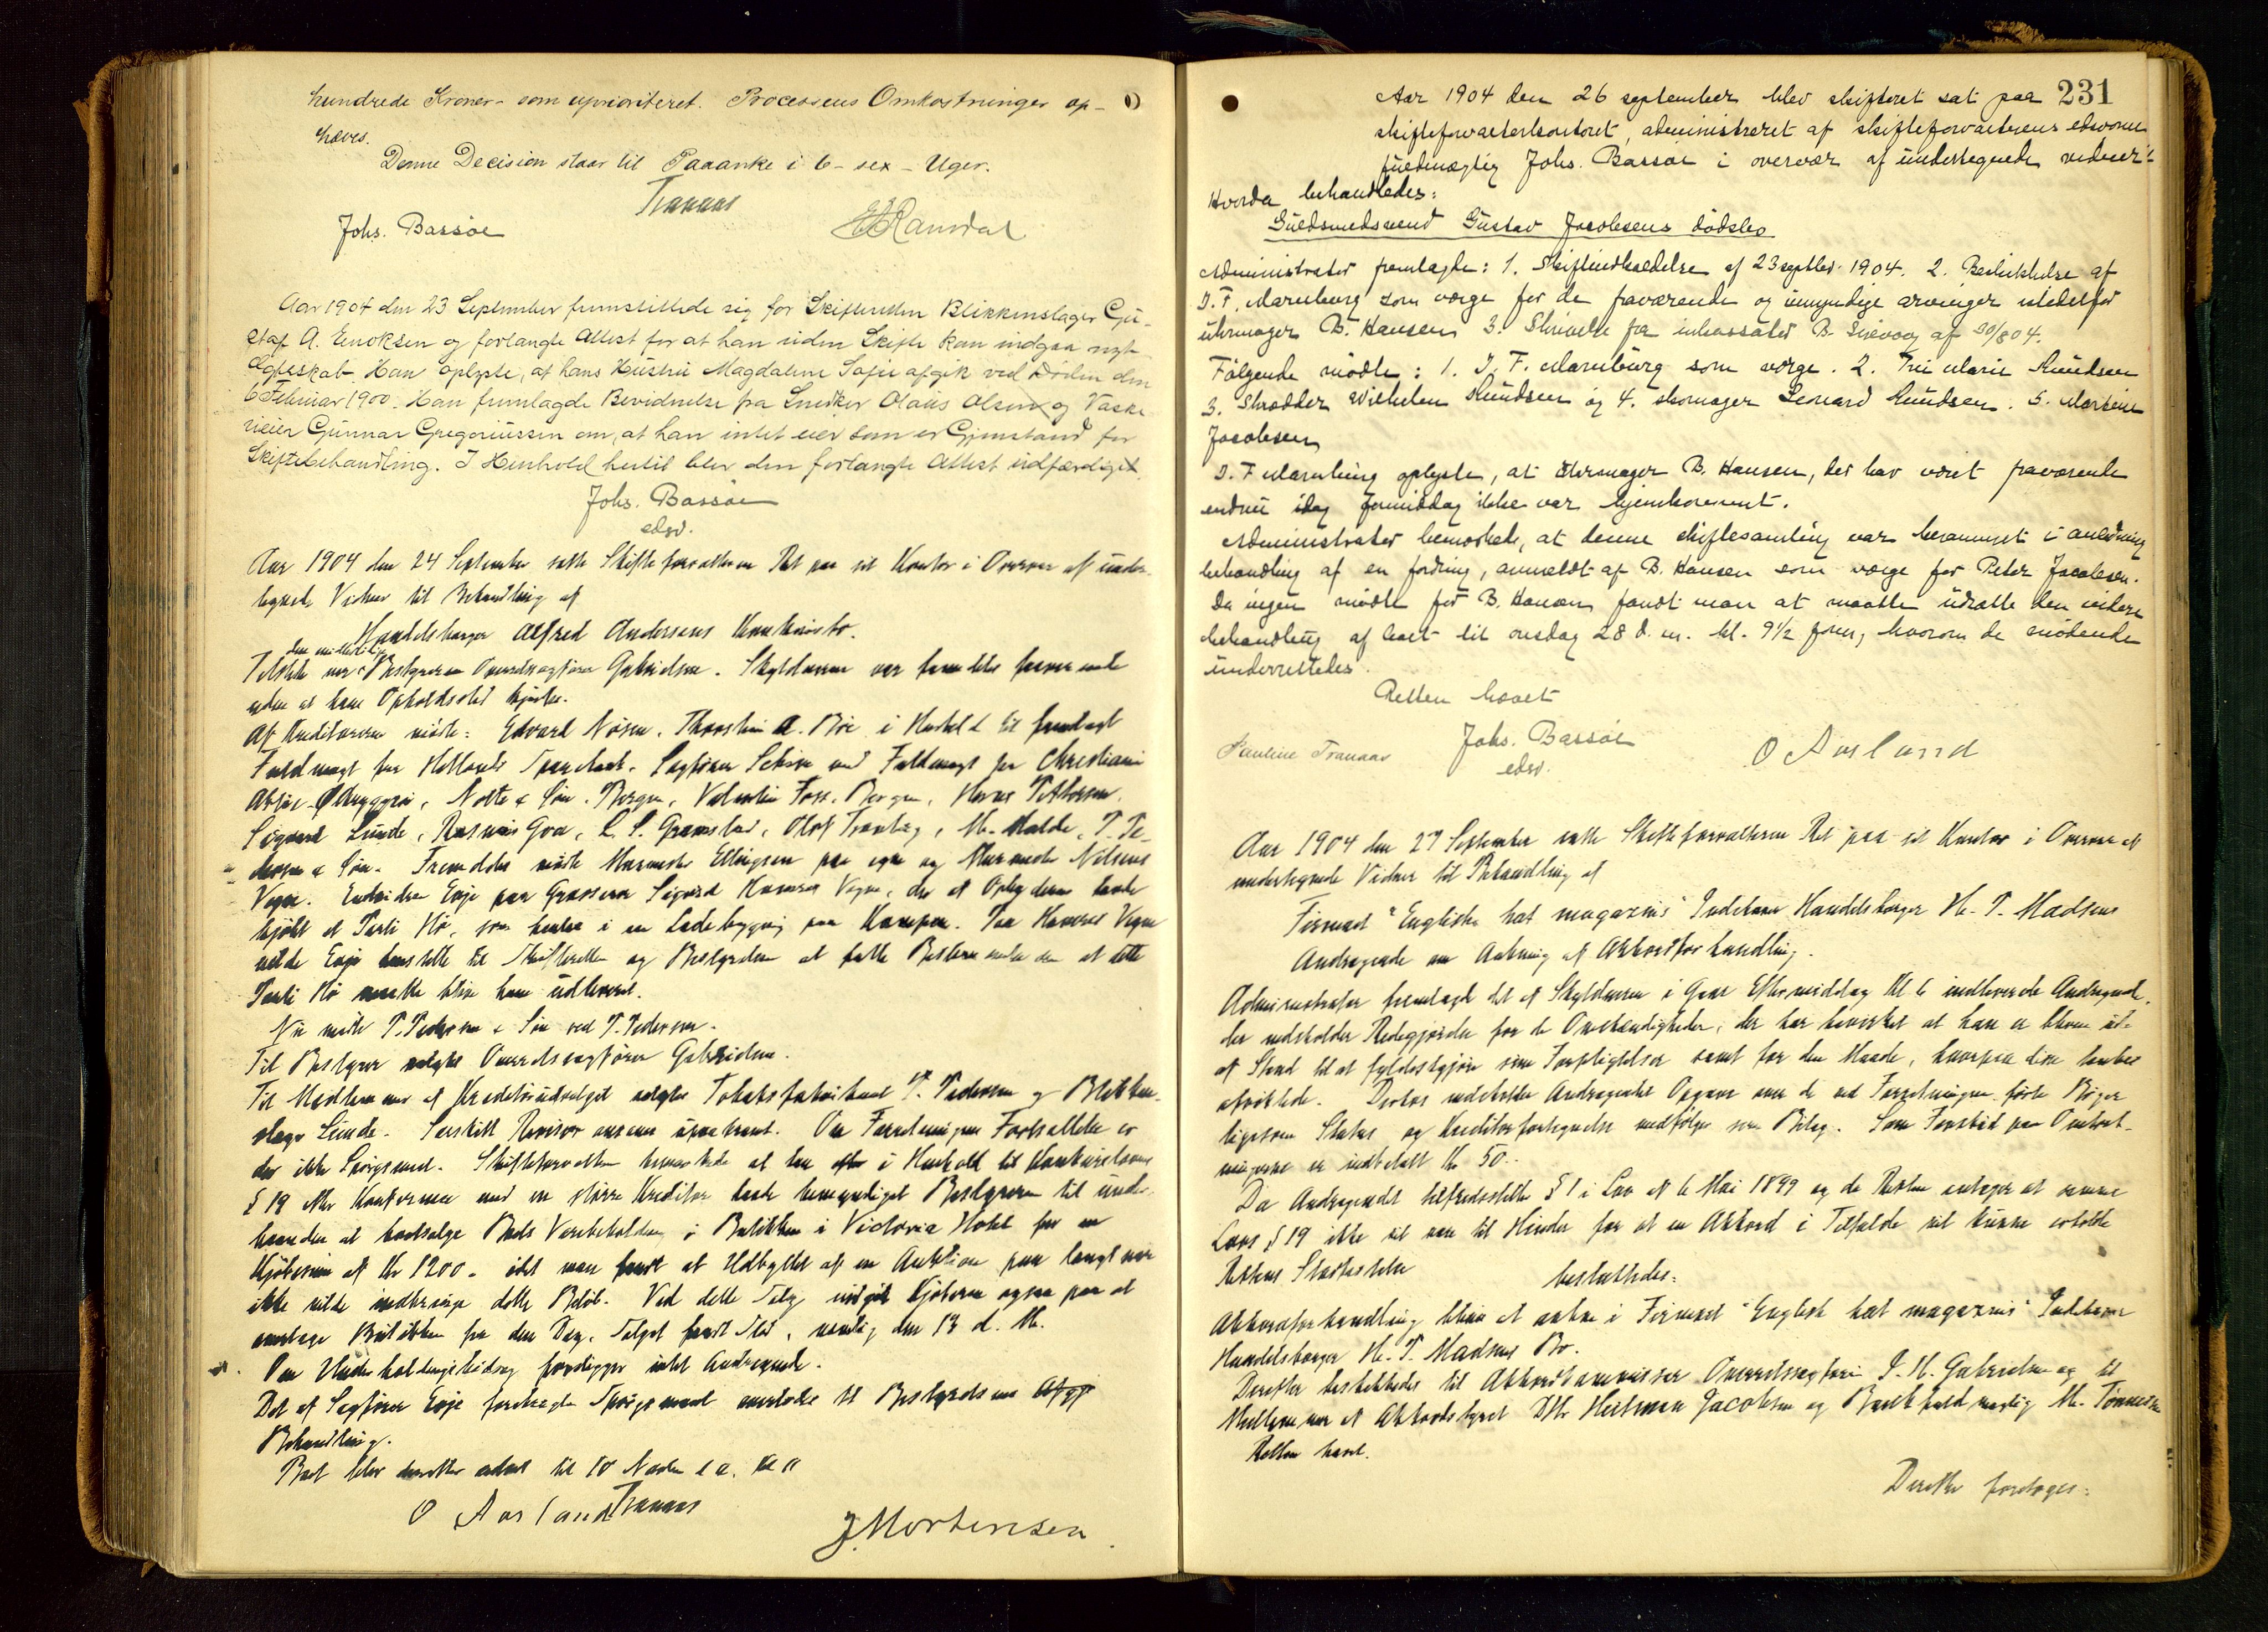 hundrede Kroner - som uprioriteret. Processens Omkostninger op-
hæves.
Denne Decision staar til Paaanke i 6 - sex - Uger.
Tranaas
Johs. Bassøe
Ramdal
Aar 1904 den 23 September fremstillede sig for Skifteretten Blikkenslager Gu-
staf A. Enoksen og forlangte Attest for at han uden Skifte kan indgaa nyt
Ægteskab. Han oplyste, at hans Hustru Magdalene Sofie afgik ved Døden den
6 Februar 1900. Han fremlagde Bevidnelse fra Snedker Olaus Olsen og Vaske
rieier Gunnar Gregoriussen om, at han intet eier som er Gjenstand for
Skiftebehandling. I Henhold hertil blev den forlangte Attest udfærdiget.
Johs. Bassøe
edsv.
Aar 1904 den 24 September satte Skifteforvalteren Ret paa sit Kontor i Overvær af under-
tegnede Vidner til Behandling af
Handelsborger Alfred Andersens Konkursbo.
den midlertidige
Tilstede var Bestyreren Overretssagfører Gabrielsen. Skyldneren var fremdeles fraværende
uden at hans Opholdssted kjendes.
Af Kreditorerne mødte: Edvard Nøsen, Thorstein A. Bøe i Henhold til fremlagt
Fuldmagt for Hetlands Sparebank. Sagfører med Fuldmagt for Christiania
Aktie-Ølbryggeri, Nolte & Søn, Bergen, Valentin Foss, Bergen, Pettersen
Sigvard Lunde, Rasmus Goa, L. S. Gramstad, Olaf Tranberg, M. Malde, P. Pe-
dersen & Søn. Fremdeles mødte Ellingsen paa egne og Nilsens
Vegne. Endvidere Evje paa Grosserer Sigvard Vegne, der af Opbyderen havde
kjøbt et Parti Hø, som i en Ladebygning paa Kampen. Paa Vegne
vilde Evje henstille til Skifteretten og Bestyrelsen at fatte Bestemmelse om at dette
Parti Hø maatte blive ham udleveret.
Nu mødte P. Pedersen & Søn ved P. Pedersen.
Til Bestyrer valgtes Overretssagfører Gabrielsen.
Til Medlemmer af Kreditorudvalget valgtes Tobaksfabrikant P. Pedersen og Blikken-
slager Lunde. Særskilt Revisor ansaaes upaakrævet. Om Forretningens Fortsættelse er
der ikke Spørgsmaal. Skifteforvalteren bemærkede at han i Henhold til Konkurslovens
§ 19 efter Konference med en større Kreditor havde bemyndiget Bestyreren til under-
haanden at bortsælge Boets Varebeholdning i Butikken i Victoria Hotel for en
Kjøbesum af Kr 1200.- idet man fandt at Udbyttet af en Auktion paa langt nær
ikke vilde indbringe dette Beløb. Ved dette Salg indgik Kjøberen ogsaa paa at
overtage Butikken fra den Dag, Salget fandt Sted, nemlig den 13 d. M.
Om Underholdningsbidrag foreligger intet Andragende.
Det af Sagfører Evje foretragte Spørgsmaal overlodes til Bestyrelsens Afgj
Behandling.
Boet blev derefter udsat til 10 Novbr d. a. Kl 11
O Aasland Tranaas
J. Mortensen
231
Aar 1904 den 26 september blev skifteret sat paa
skifteforvalterkontoret, administreret af skifteforvalterens edsvorne
fuldmægtig Johs. Bassøe i overvær af undertegnede vidner.
Hvorda behandledes:
Guldsmedsvend Gustav Jacobsens dødsbo
Administrator fremlagde: 1. Skifteindkaldelse af 23 septbr. 1904. 2. Beskikkelse af
I. F. Marnburg som værge for de fraværende og umyndige arvinger istedetfor
uhrmager B. Hansen 3. Skrivelse fra inkassator B. af 30/8 04.
Følgende mødte: 1. I. F. Marnburg som værge. 2. Fru Marie Knudsen
3. Skrædder Wilhelm Knudsen og 4. skomager Leonard Knudsen. 5. Martine
Jacobsen
I. F. Marnburg oplyste, at uhrmager B. Hansen, der har været fraværende
endnu idag formiddag ikke var hjemkommet.
Administrator bemærkede, at denne skiftesamling var berammet i anledning
behandling af en fordring, anmeldt af B. Hansen som værge for Peter Jacobsen.
Da ingen mødte for B. Hansen fandt man at maatte udsætte den videre
behandling af boet til onsdag 28 d. m. kl. 9 1/2 form., hvorom de mødende
underrettedes.
Retten hævet
Pauline Tranaas
Johs. Bassøe
edsv.
O Aasland
Aar 1904 den 27 September satte Skifteforvalteren Ret paa sit Kontor i Overvær af
undertegnede Vidner til Behandling af
Firmaet "Engliske hat magazins" Indehaver Handelsborger H. P. Madsens
Andragende om Aabning af Akkordforhandling.
Administrator fremlagde det af Skyldneren i Gaar Eftermiddag Kl 6 indleverede Andragende,
der indeholder Redegjørelse for de Omstændigheder, der har bevirket at han er bleven ude
af Stand til at fyldestgjøre sine Forpligtelser samt for den Maade, hvorpaa disse tænkes
afviklede. Derhos indeholder Andragendet Opgave over de ved Forretningen førte Bøger
ligesom Status og Kreditorfortegnelse medfølger som Bilag. Som Forskud paa Omkost-
ningerne er indbetalt Kr 50.-
Da Andragendet tilfredsstiller § 1 i Lov af 6 Mai 1899 og da Retten antager at samme
Lovs § 19 ikke vil være til Hinder for at en Akkord i Tilfælde vil kunne erholde
Rettens Stadfæstelse
besluttedes:
Akkordforhandling bliver at aabne i Firmaet "Englisk hat magazins" Indehaver
Handelsborger H. P. Madsens Bo.
Derefter beskikkedes til Akkordkommissær Overretssagfører J. M. Gabrielsen og til
Medlemmer af Akkordstyret Dhr. Jacobsen og Bankfuldmægtig M. Tønnesen
Retten hævet.
Derefter foretoges: